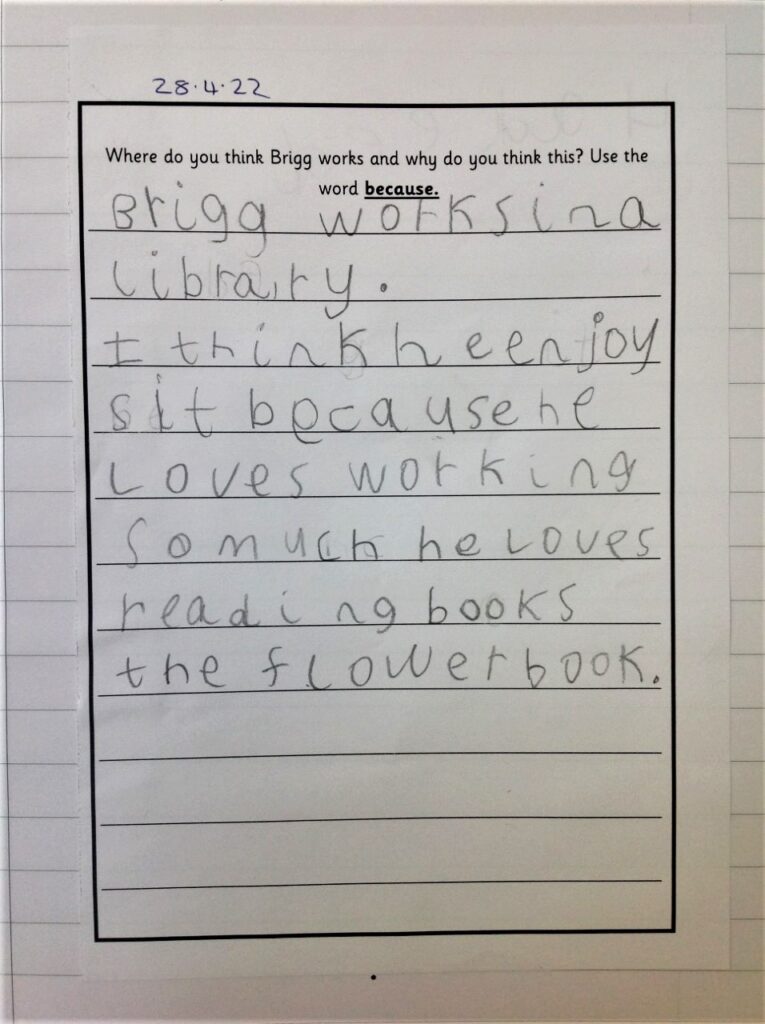 28.4.22
Where do you think Brigg works and why do you think this? Use the
word because.
Brigg works in a
library.
I think he enjoy
s it because he
Loves working
So much he Loves
reading books
the flower book.